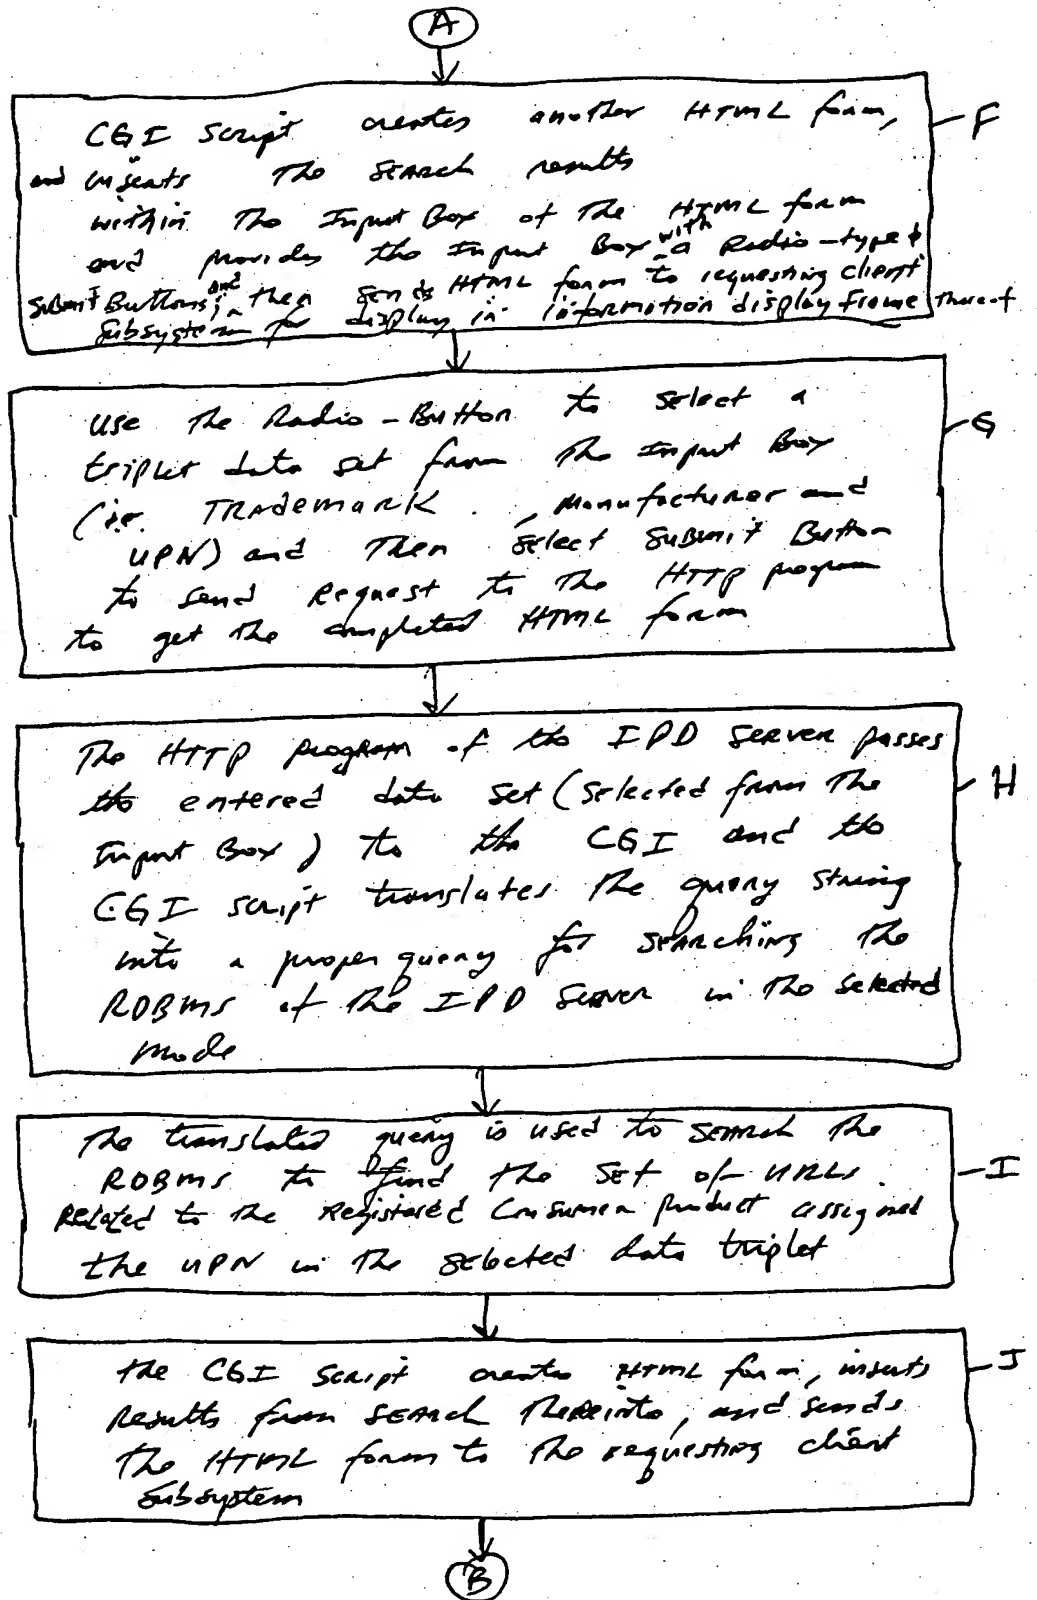 A
CGI Script creates another HTML form,
F
and inserts The SEARCH results
within The Input Box of The HTML form
and provides the Input Box with a Radio-type &
Submit Buttons; and then sends HTML form to requesting client
Subsystem for display in information display frame thereof
Use the Radio-Button to select a
triplet data set from The Input Box
G
(ie. TRADEMARK, Manufacturer and
UPN) and Then select Submit Button
to send Request to The HTTP program
to get the completed HTML form
The HTTP program of the IPD Server passes
the entered data set (selected from The
H
Input Box) to the CGI and the
CGI script translates The query string
into a proper query for searching The
RDBMS of the IPD Server in The selected
mode
The translated query is used to SEARCH The
RDBMS to find The Set of URLs
I
Related to The Registered Consumer product assigned
the UPN in The selected data triplet
the CGI Script creates HTML form, inserts
J
Results from SEARCH Thereinto, and sends
The HTML form to The requesting client
Subsystem
B